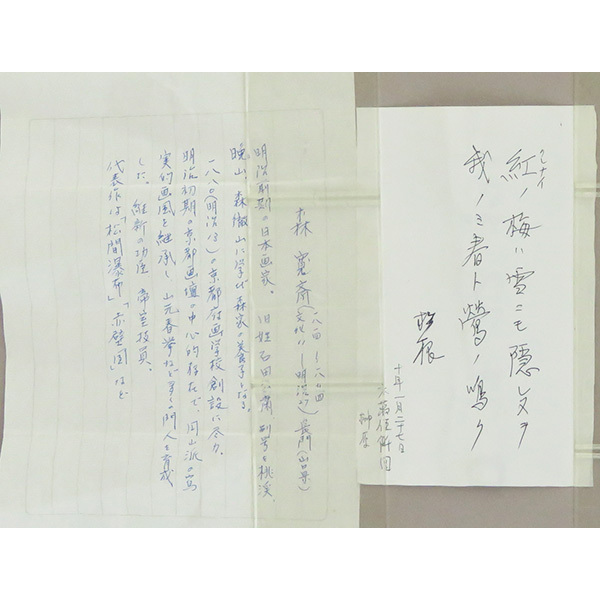 紅ノ梅ハ雪ニモ隠レヌヲ
クレナイ
我ノミ春ト鶯ノ鳴ク
十年一月二十七日
森 寛斎(文化11―明治27)長門(山口県)
一八一四―一八九四
明治前期の日本画家。旧姓石田、粛 別号を桃渓、
晩山、森徹山に学び森家の養子となる。
一八八〇(明治13)の京都府画学校創設に尽力。
明治初期の京都画壇の中心的存在で、円山派の写
実的画風を継承し山元春挙など多くの門人を育成
した。維新の功臣 帝室技員。
代表作は「松間瀑布」「赤壁図」など